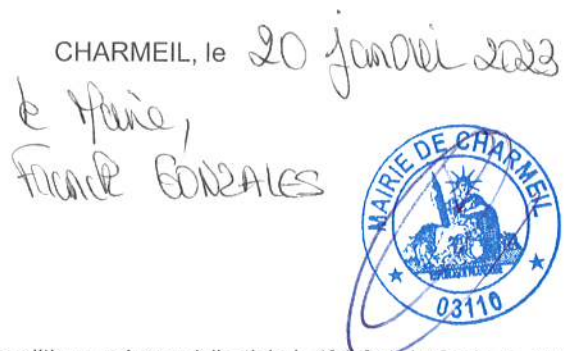 CHARMEIL, le 20 janvier 2023
Le Maire,
Franck GONZALES
MAIRIE DE CHARMEIL
03110